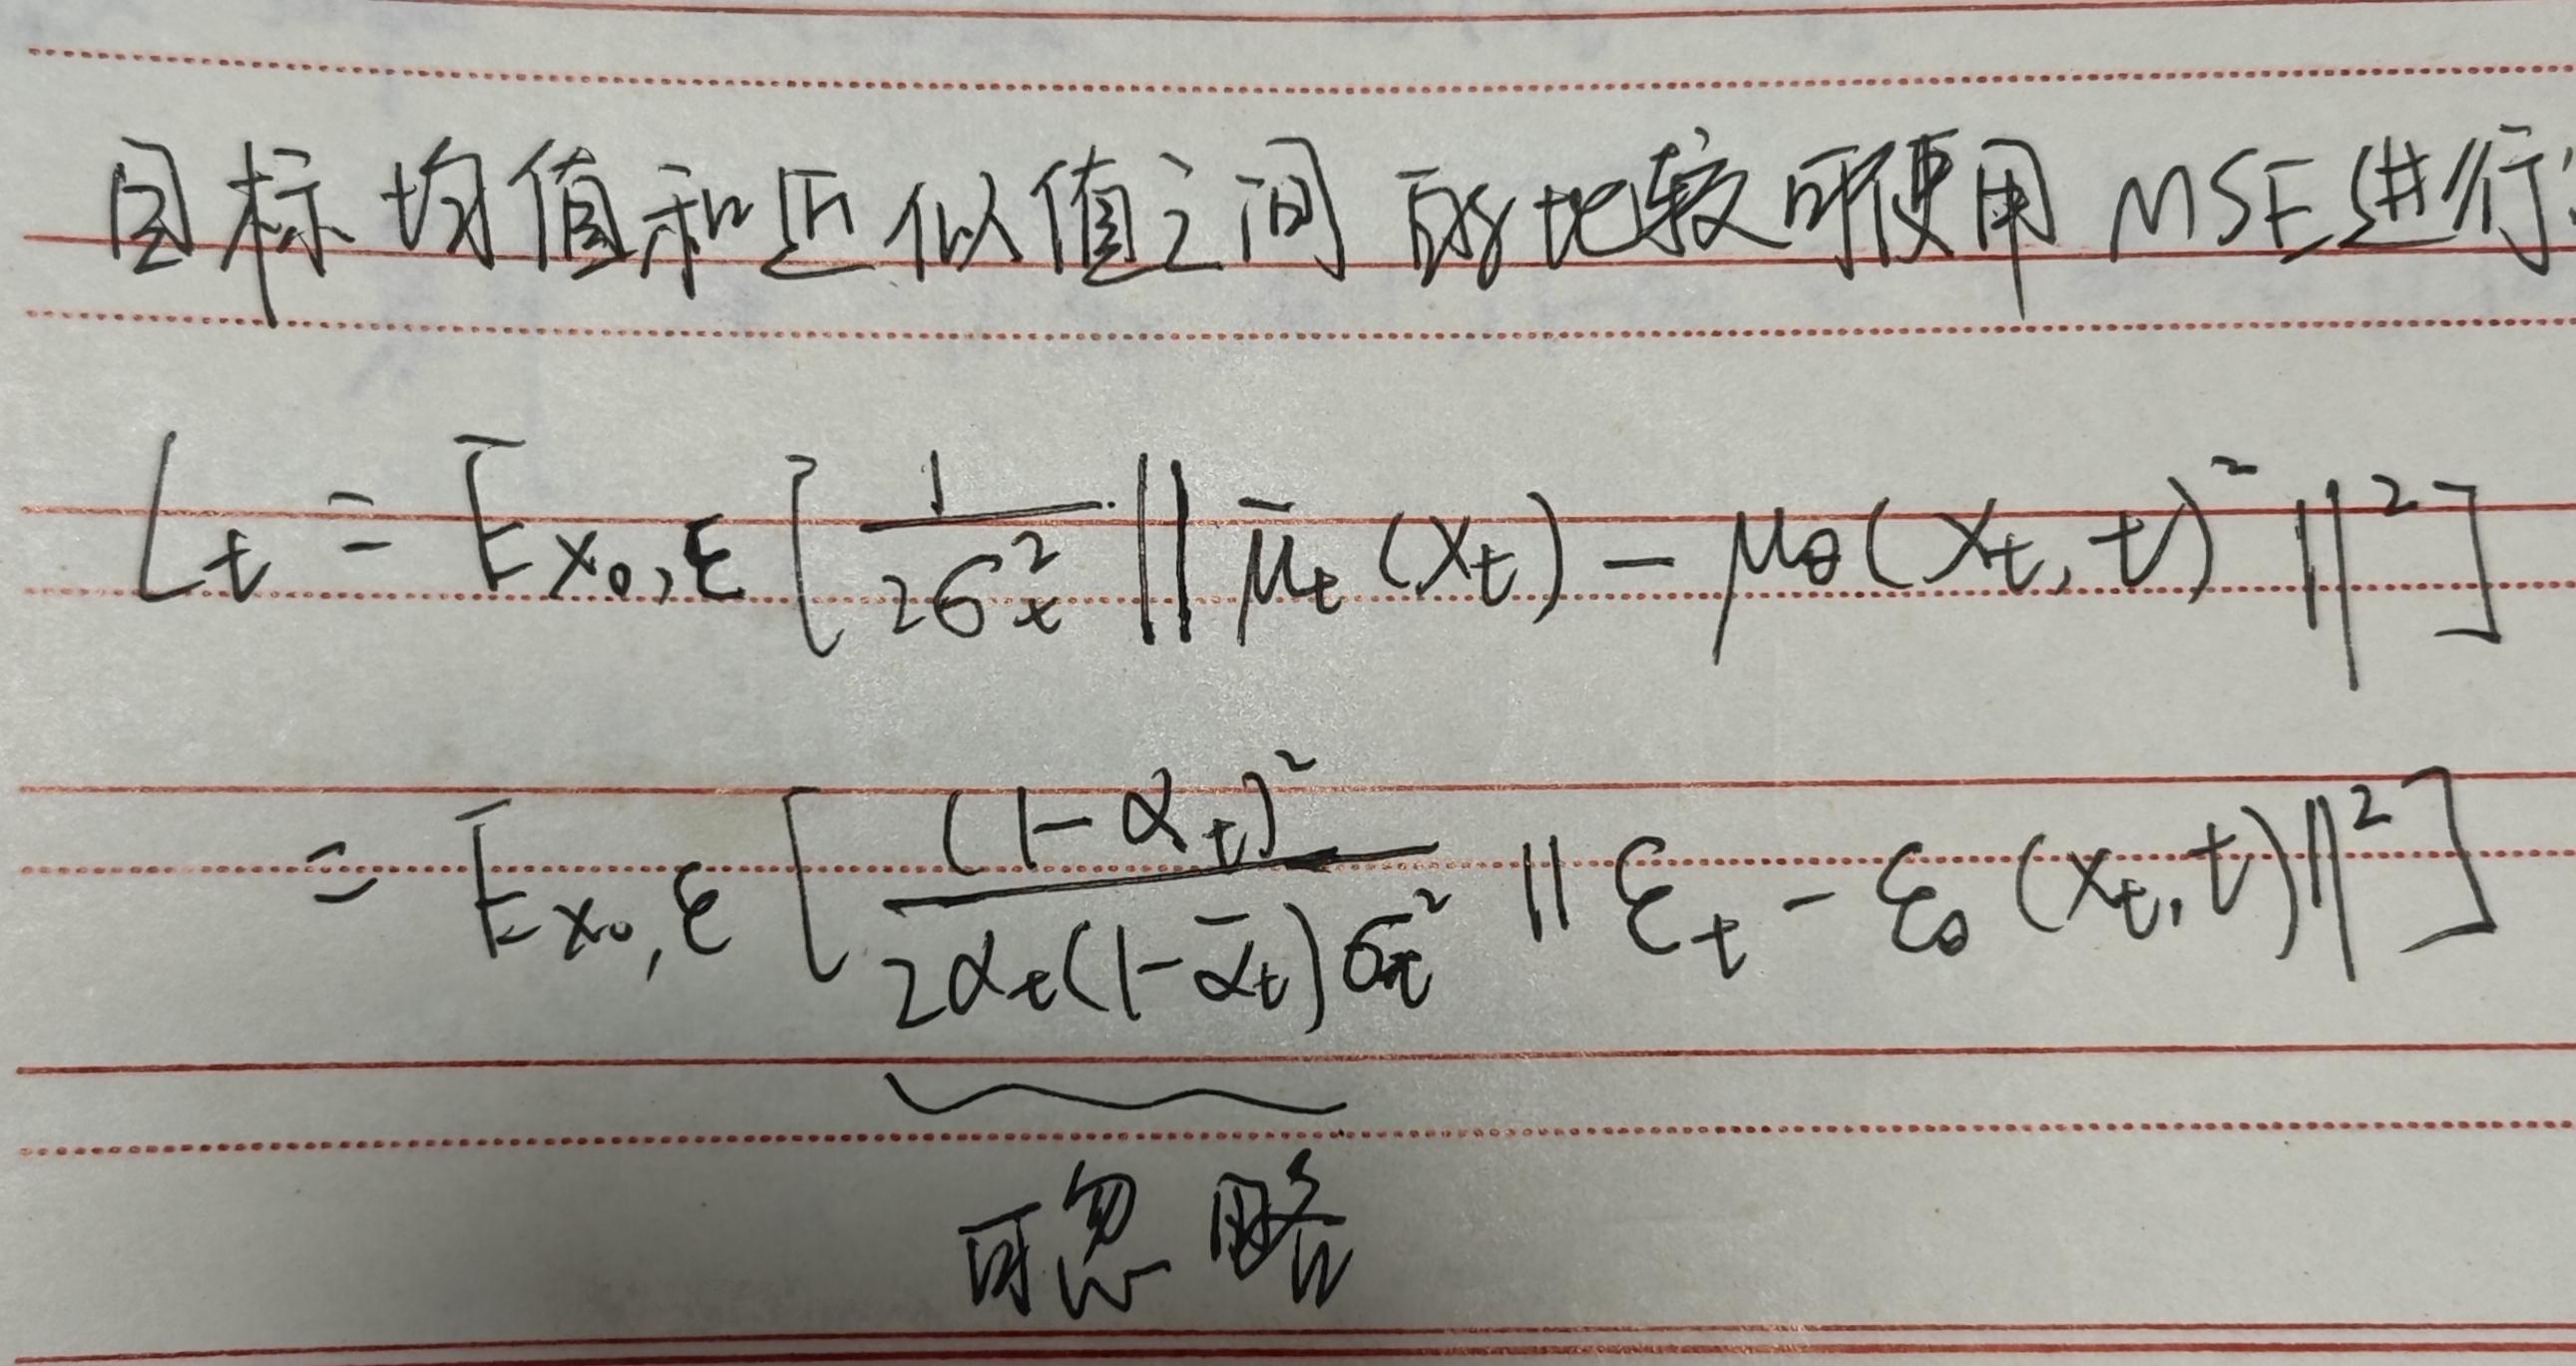 目标均值和近似值之间的比较可使用MSE进行:
L_t = E_{x_0,ε}[\frac{1}{2σ_t^2}||\bar{μ}_t(x_t) - μ_θ(x_t, t)^2||^2]
= E_{x_0,ε}[\frac{(1-α_t)^2}{2α_t(1-\bar{α}_t)σ_t^2}||ε_t - ε_θ(x_t, t)||^2]
可忽略